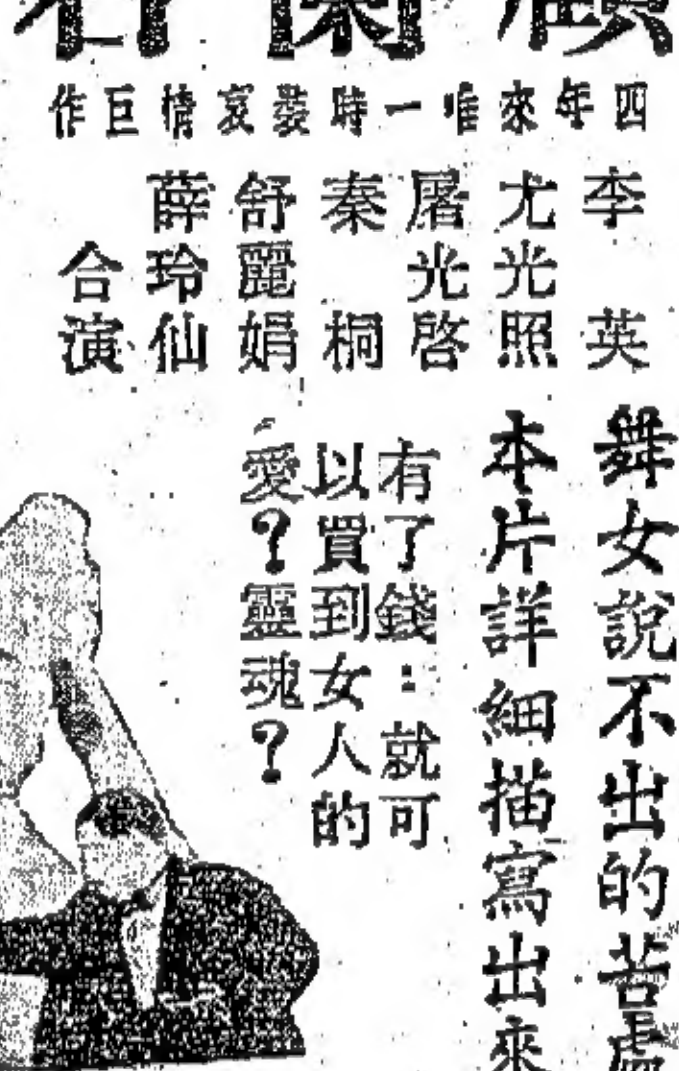 四年來唯一時裝哀情巨作
李英
尤光照
屠光啓
秦桐
舒麗娟
薛玲仙
合演
舞女說不出的苦處
本片詳細描寫出來
有了錢：就可
以買到女人的
愛？靈魂？